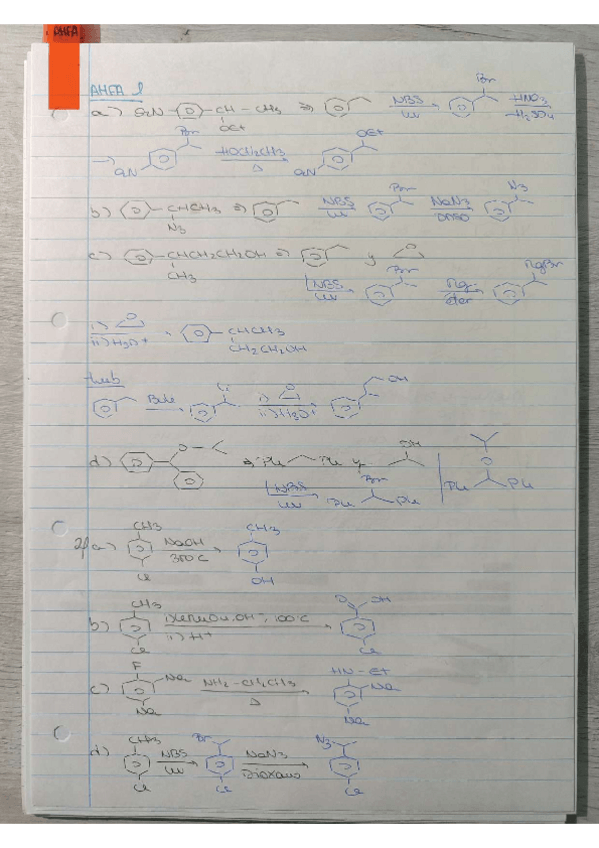 AHFA 1
a) O₂N - CH - CH₃ ⇒ NBS UV Br HNO₃ H₂SO₄
OEt
→ Br O₂N HOCH₂CH₃ Δ OEt O₂N
b) CHCH₃ ⇒ NBS UV Br NaN₃ DMSO N₃
N₃
c) CHCH₂CH₂OH ⇒ y O
CH₃ NBS UV Br Mg eter MgBr
i) O ii) H₃O+ CHCH₃
CH₂CH₂OH
BuLi Li i) O ii) H₃O+ OH
d) O ⇒ Ph Ph y OH
NBS UV Br Ph Ph O Ph Ph
2) a) CH₃ Cl NaOH 350°C CH₃ OH
b) CH₃ Cl i) KMnO₄, OH⁻, 100°C ii) H+ O OH Cl
c) F NO₂ NO₂ NH₂-CH₂CH₃ Δ HN-Et NO₂ NO₂
d) CH₃ Cl NBS UV Br Cl NaN₃ Dioxano N₃ Cl